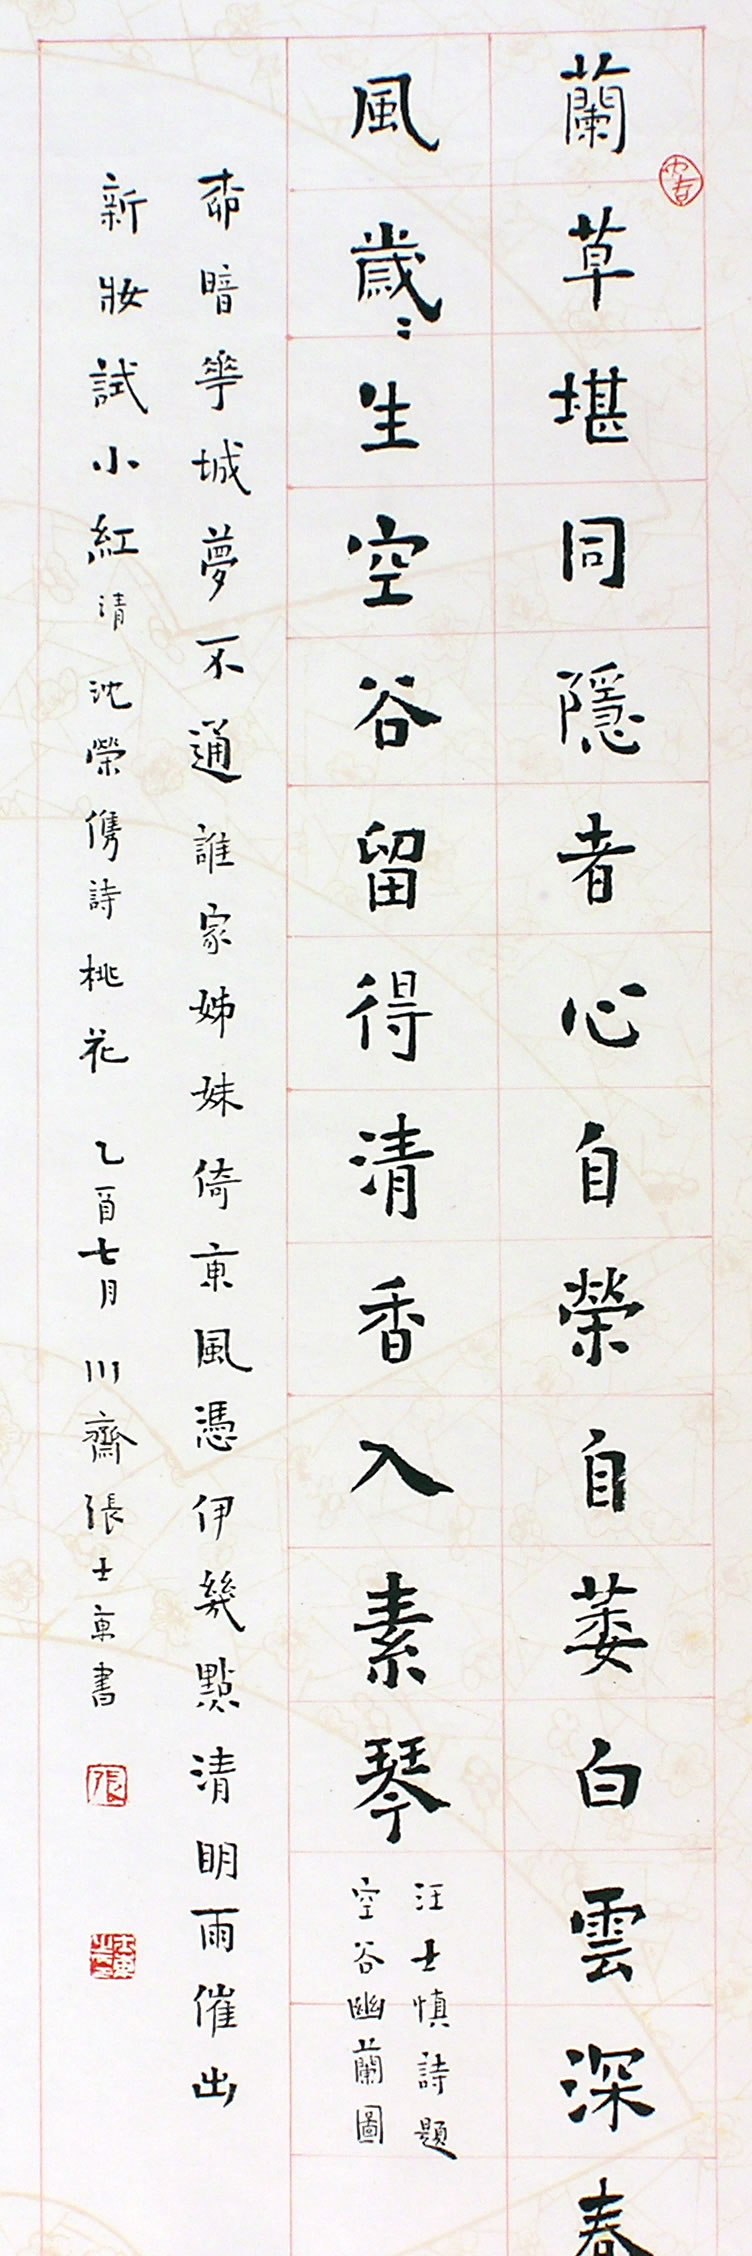 蘭草堪同隱者心自榮自萎白雲深春
風歲〻生空谷留得清香入素琴
汪士慎詩題
空谷幽蘭圖
暗華城夢不通誰家姊妹倚東風憑伊幾點清明雨催出
新妝試小紅清沈榮儁詩桃花乙酉七月川齋張士東書
張